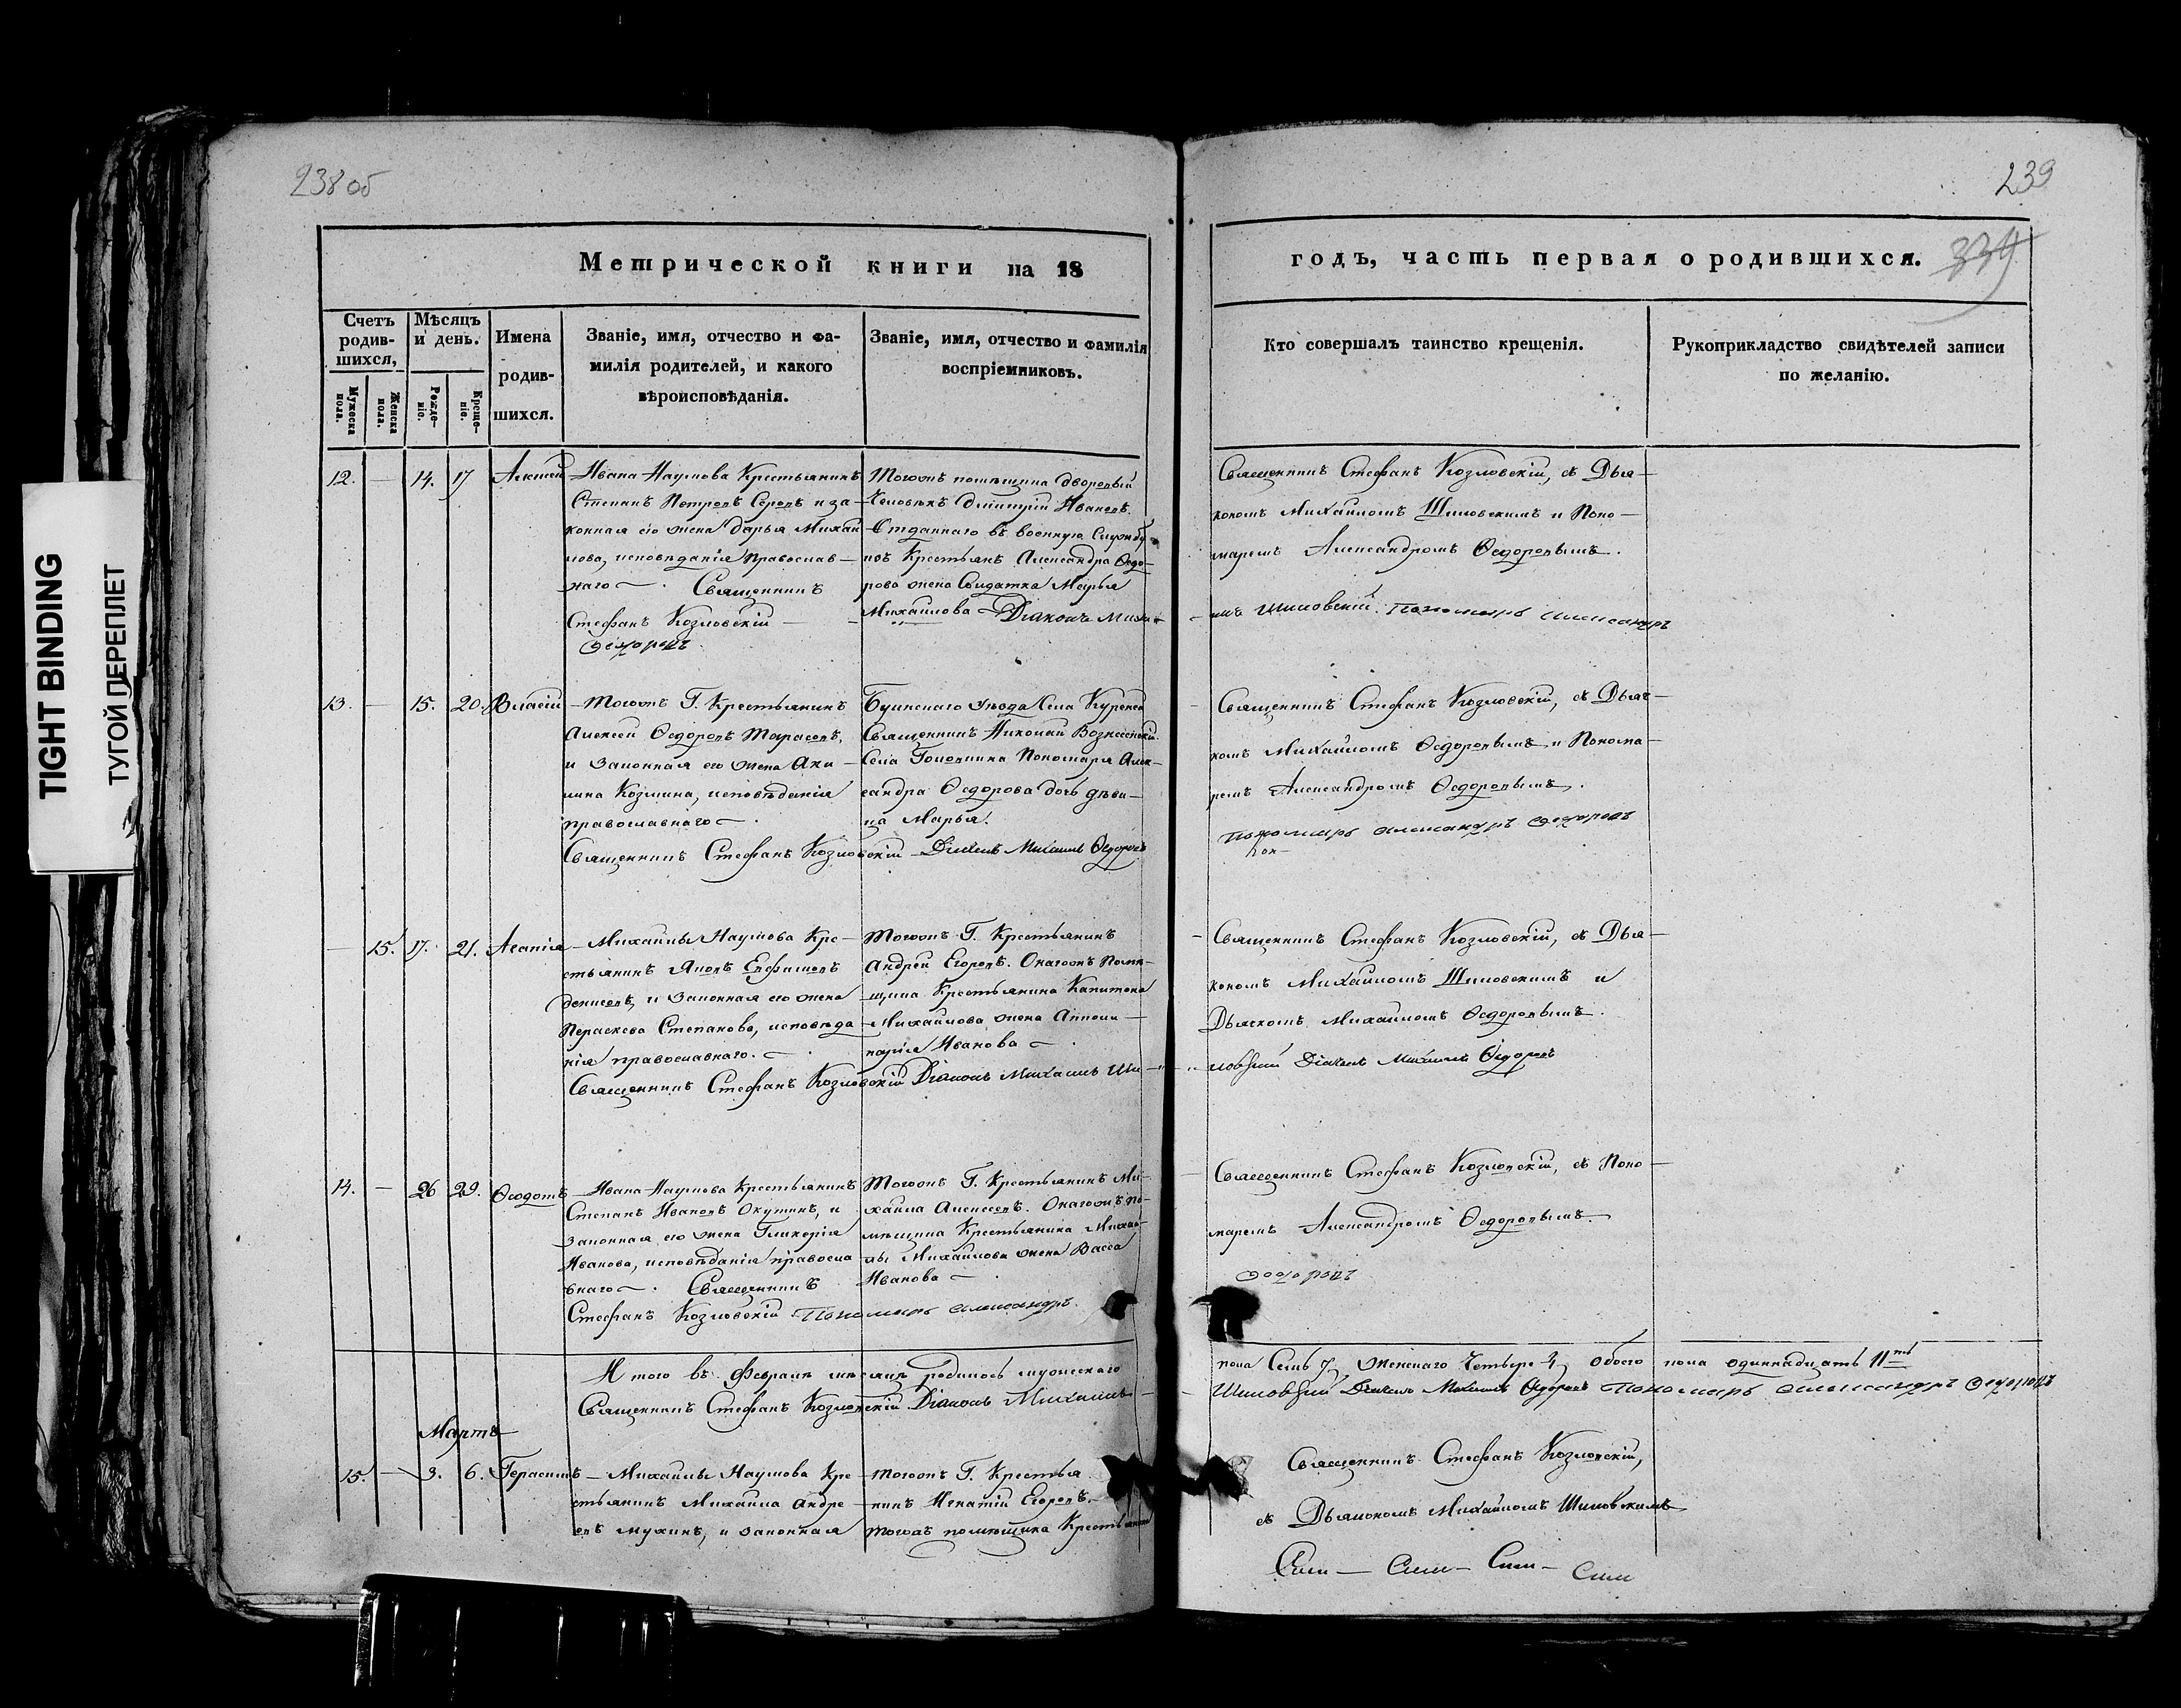 238 об
239
339
TIGHT BINDING
ТУГОЙ ПЕРЕПЛЕТ
Метрической книги на 18
годъ, часть первая о родившихся.
Счетъ родив-шихся,
Мужеска пола.
Женска пола.
Мѣсяцъ и день.
Рожде-ніе.
Креще-ніе.
Имена
родив-
шихся.
Званіе, имя, отчество и фа-
милія родителей, и какого
вѣроисповѣданія.
Званіе, имя, отчество и фамилія
воспріемниковъ.
Кто совершалъ таинство крещенія.
Рукоприкладство свидѣтелей записи
по желанію.
12. — 14. 17 Алексѣй
Ивана Наумова Крестьянинъ
Степанъ Петровъ Серовъ и за-
конная его жена Дарья Михай-
лова, исповѣданія православ-
наго —. Священникъ
Стефанъ Козловскій —
Ѳедоровъ.
Тогожъ помѣщика дворовый
Человѣкъ Дмитрій Ивановъ.
Отданнаго въ военную Службу
изъ Крестьянъ Александра Ѳедо-
рова жена Солдатка Марья
Михайлова — Діаконъ Миха-
Священникъ Стефанъ Козловскій, съ Дья-
кономъ Михайломъ Шиловскимъ и Поно-
маремъ Александромъ Ѳедоровымъ.
илъ Шиловскій. Пономарь Александръ
13. — 15. 20. Власій
Тогожъ Г. Крестьянинъ
Алексѣй Ѳедоровъ Тарасовъ,
и Законная его жена Аку-
лина Козмина, исповѣданія
православнаго —.
Священникъ Стефанъ Козловскій
Буинскаго уѣзда Села
Священникъ Николай Вознесенскій.
Села Пономаря Алек-
сандра Ѳедорова дочь дѣви-
ца Марья.
Дьячекъ Михаилъ Ѳедоровъ
Священникъ Стефанъ Козловскій, съ Дьяч-
комъ Михайломъ Ѳедоровымъ и Понома-
ремъ Александромъ Ѳедоровымъ.
Пономарь Александръ Ѳедоровъ
— 15. 17. 21. Агапія
Михайлы Наумова Кре-
стьянинъ Яковъ Ефимовъ
Денисовъ, и Законная его жена
Параскева Степанова, исповѣда-
нія православнаго. —.
Священникъ Стефанъ Козловскій
Тогожъ Г. Крестьянинъ
Андрей Егоровъ. Онагожъ Помѣ-
щика Крестьянина Капитона
Михайлова жена Аполли-
нарія Иванова —.
Діаконъ Михаилъ Ши-
Священникъ Стефанъ Козловскій, съ Дья-
кономъ Михайломъ Шиловскимъ и
Дьячкомъ Михайломъ Ѳедоровымъ.
ловскій Дьячекъ Михаилъ Ѳедоровъ
14. — 26 29. Ѳеодотъ
Ивана Наумова Крестьянинъ
Степанъ Ивановъ Окутинъ, и
Законная его жена Гликерія
Иванова, исповѣданія правосла-
внаго —. Священникъ
Стефанъ Козловскій Пономарь Александръ
Тогожъ Г. Крестьянинъ Ми-
хайла Алексеевъ. Онагожъ По-
мѣщика Крестьянина Михай-
лы Михайлова жена Васса
Иванова —.
Священникъ Стефанъ Козловскій, съ Поно-
маремъ Александромъ Ѳедоровымъ.
Ѳедоровъ
Итого въ Февралѣ мѣсяцѣ родилось мужескаго
пола Семь 7, Женскаго Четыре 4, Обоего пола одиннадцать 11ть
Священникъ Стефанъ Козловскій Діаконъ Михаилъ
Шиловскій Дьячекъ Михаилъ Ѳедоровъ Пономарь Александръ Ѳедоровъ
Мартъ
15. — 3. 6. Герасимъ
Михайлы Наумова Кре-
стьянинъ Михайла Андре-
евъ Мухинъ, и законная
Тогожъ Г. Крестья-
нинъ Игнатій Егоровъ.
Тогожъ помѣщика Крестьянина
Священникъ Стефанъ Козловскій,
съ Дьякономъ Михайломъ Шиловскимъ